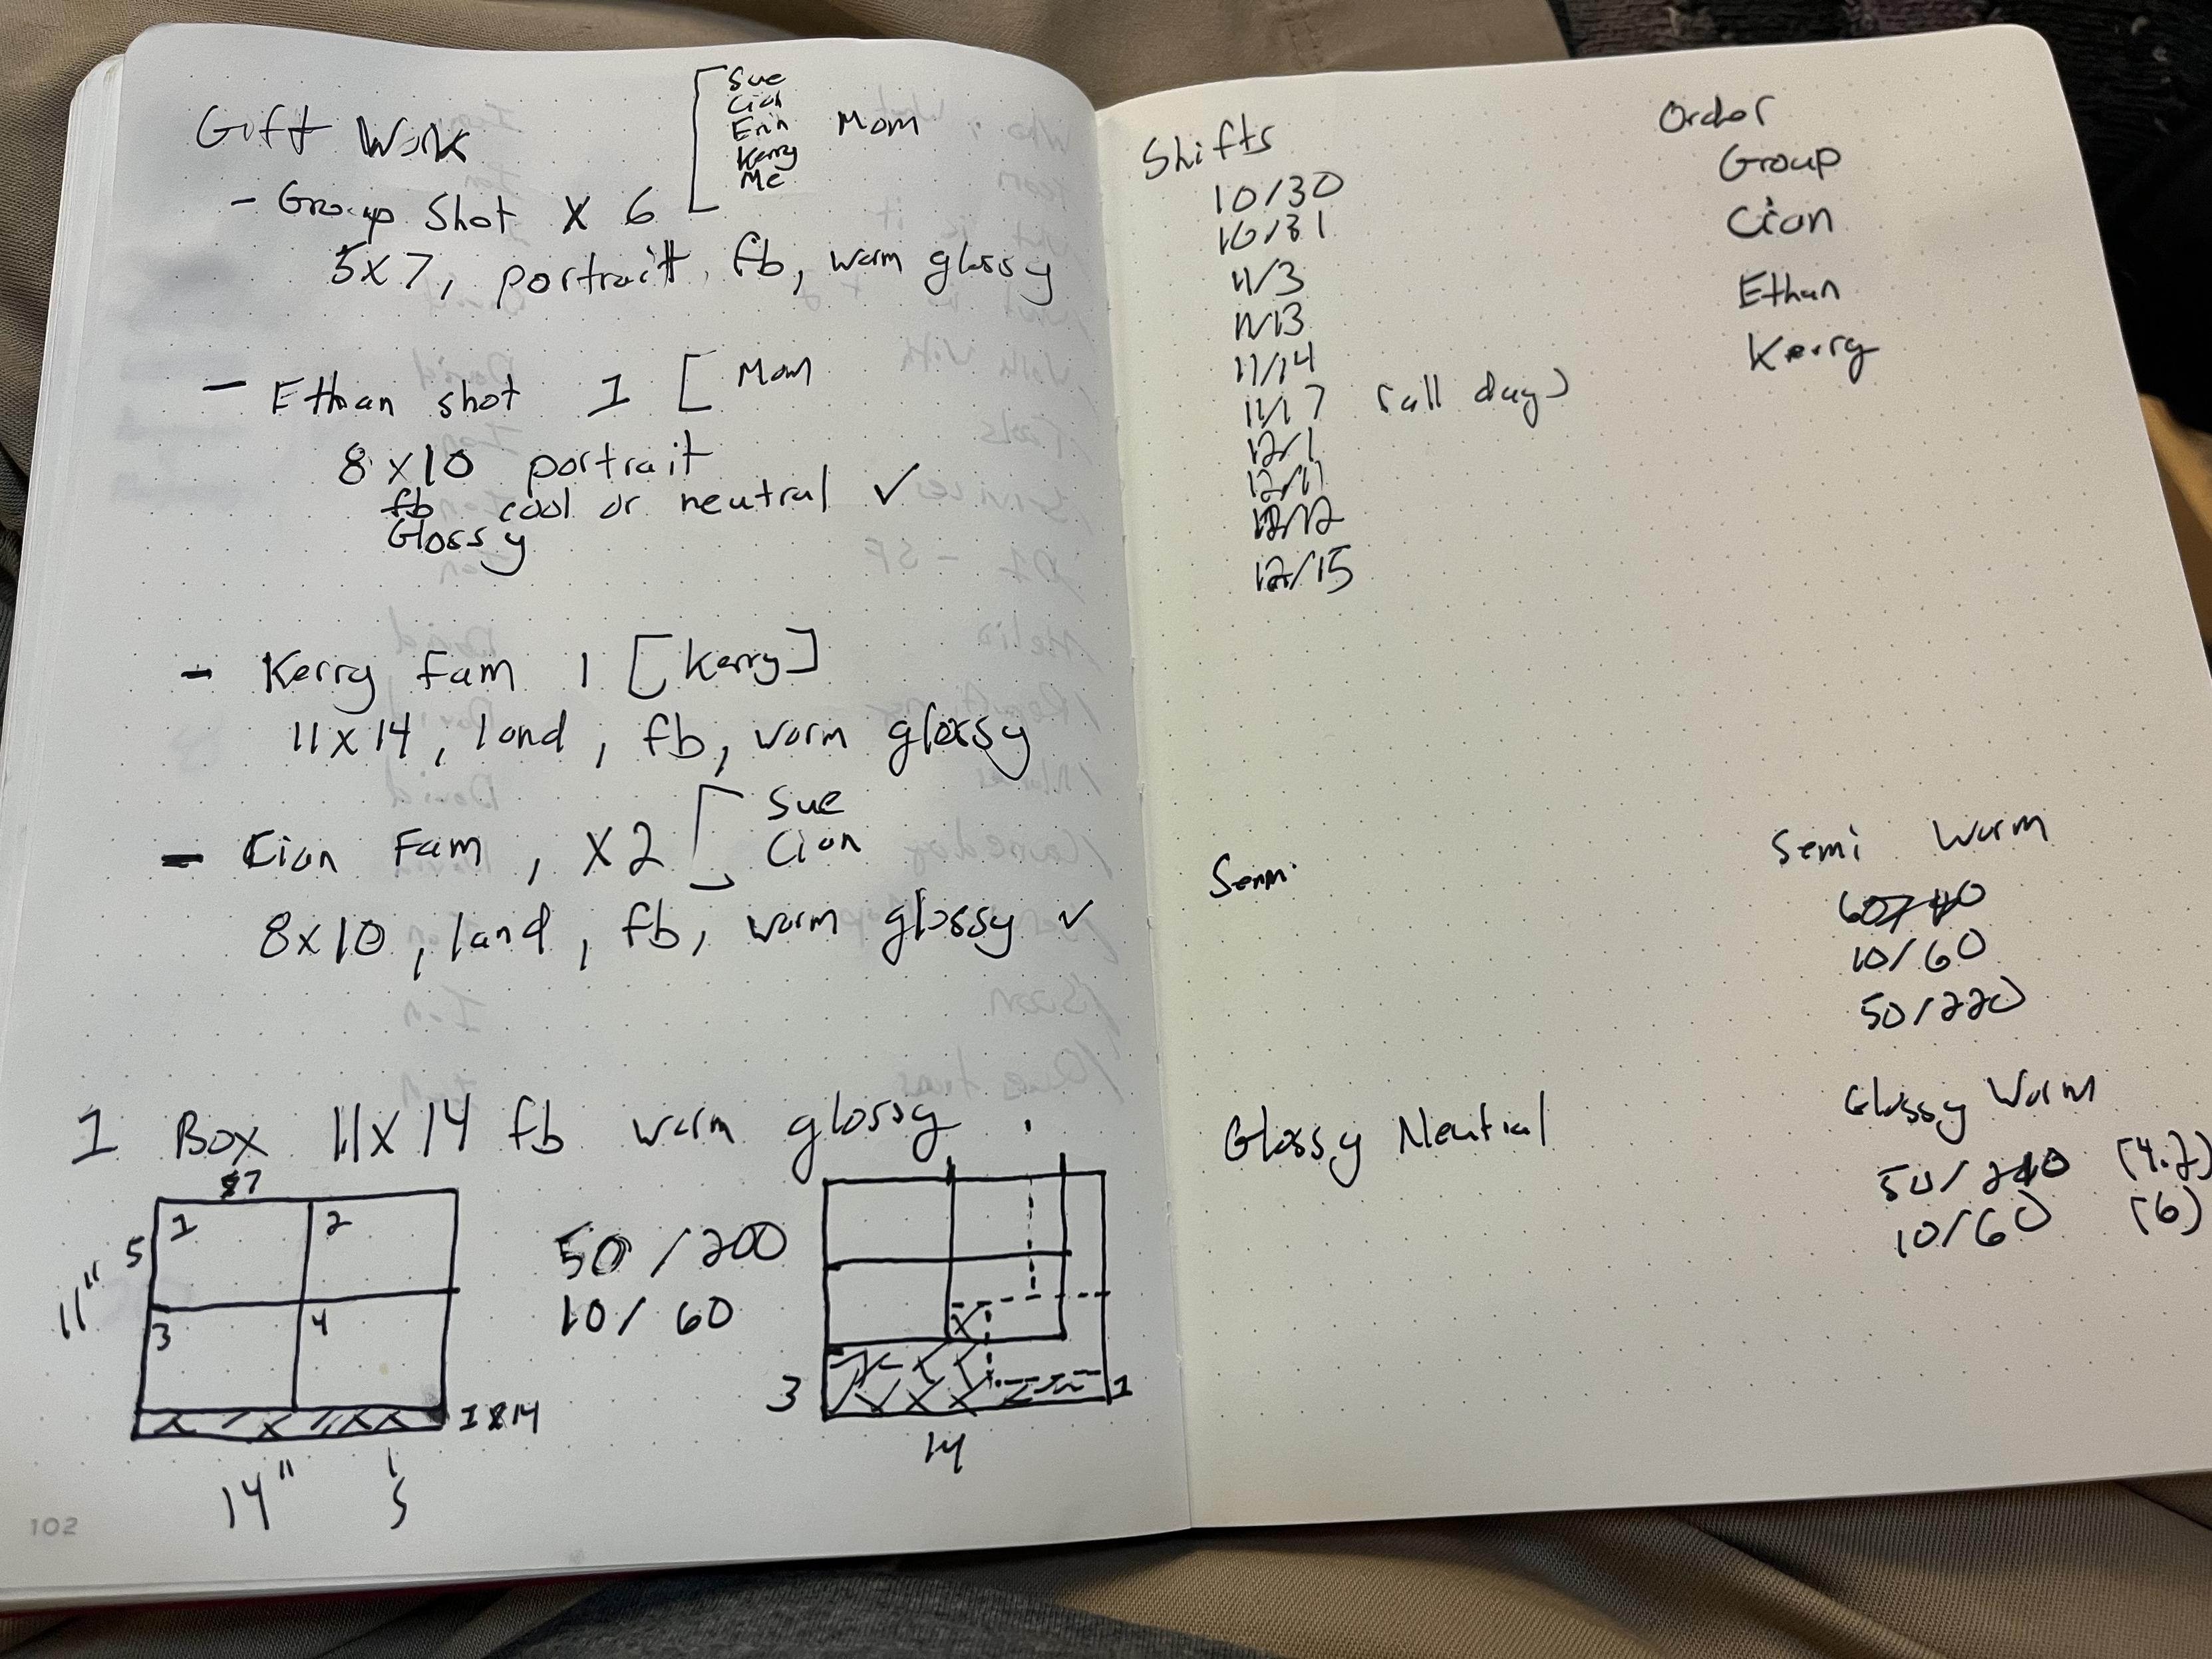 Gift Work
Sue
Cian
Erin
Kerry
Me
Mom
- Group Shot x 6
5x7, portrait, fb, warm glossy
- Ethan shot 1 [ Mom
8x10 portrait
fb cool or neutral ✓
Glossy
- Kerry Fam 1 [Kerry]
11x14, land, fb, warm glossy
- Cian Fam, x2
Sue
Cian
8x10, land, fb, warm glossy ✓
1 Box 11x14 fb warm glossy
7
1 2
5
11"
3 4
1x14
14"
5
50/200
10/60
x
3
1
14
102
Shifts
10/30
10/31
11/3
11/13
11/14
11/17 (all day)
12/1
12/11
12/12
12/15
Order
Group
Cian
Ethan
Kerry
Semi
Semi Warm
10/60
50/220
Glossy Neutral
Glossy Warm
50/ (4.2)
10/60 (6)